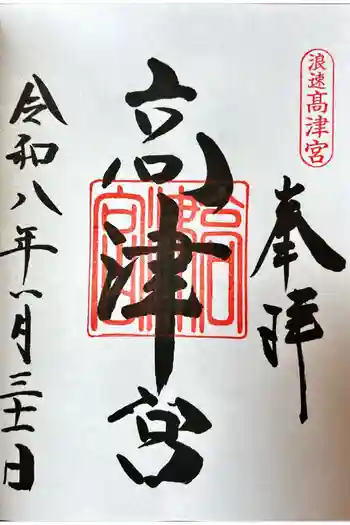 浪速髙津宮
奉拝
高津宮
令和八年八月三十一日